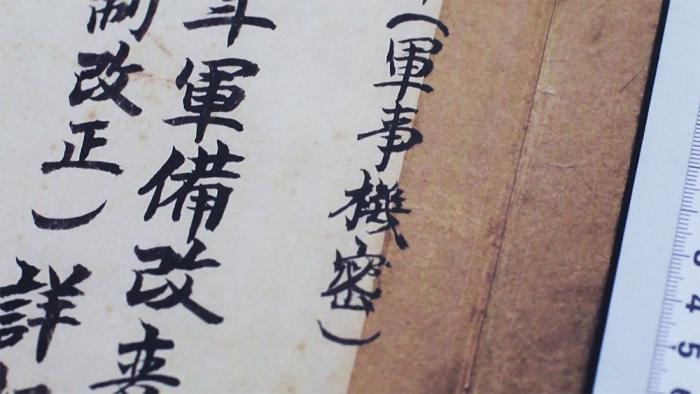 （軍事機密）
年軍備改善
制改正）詳
3 4 5